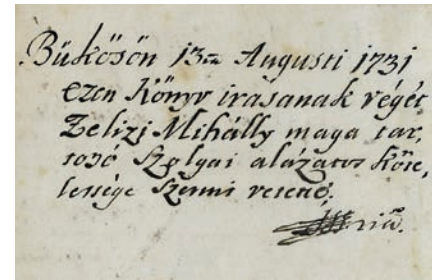 Bükösön 13ᵃ Augusti 1731
ezen Könyv irasanak végét
Zelizi Mihálly maga tar,
tosó Szolgai alázatos Köte,
lessége Szerint